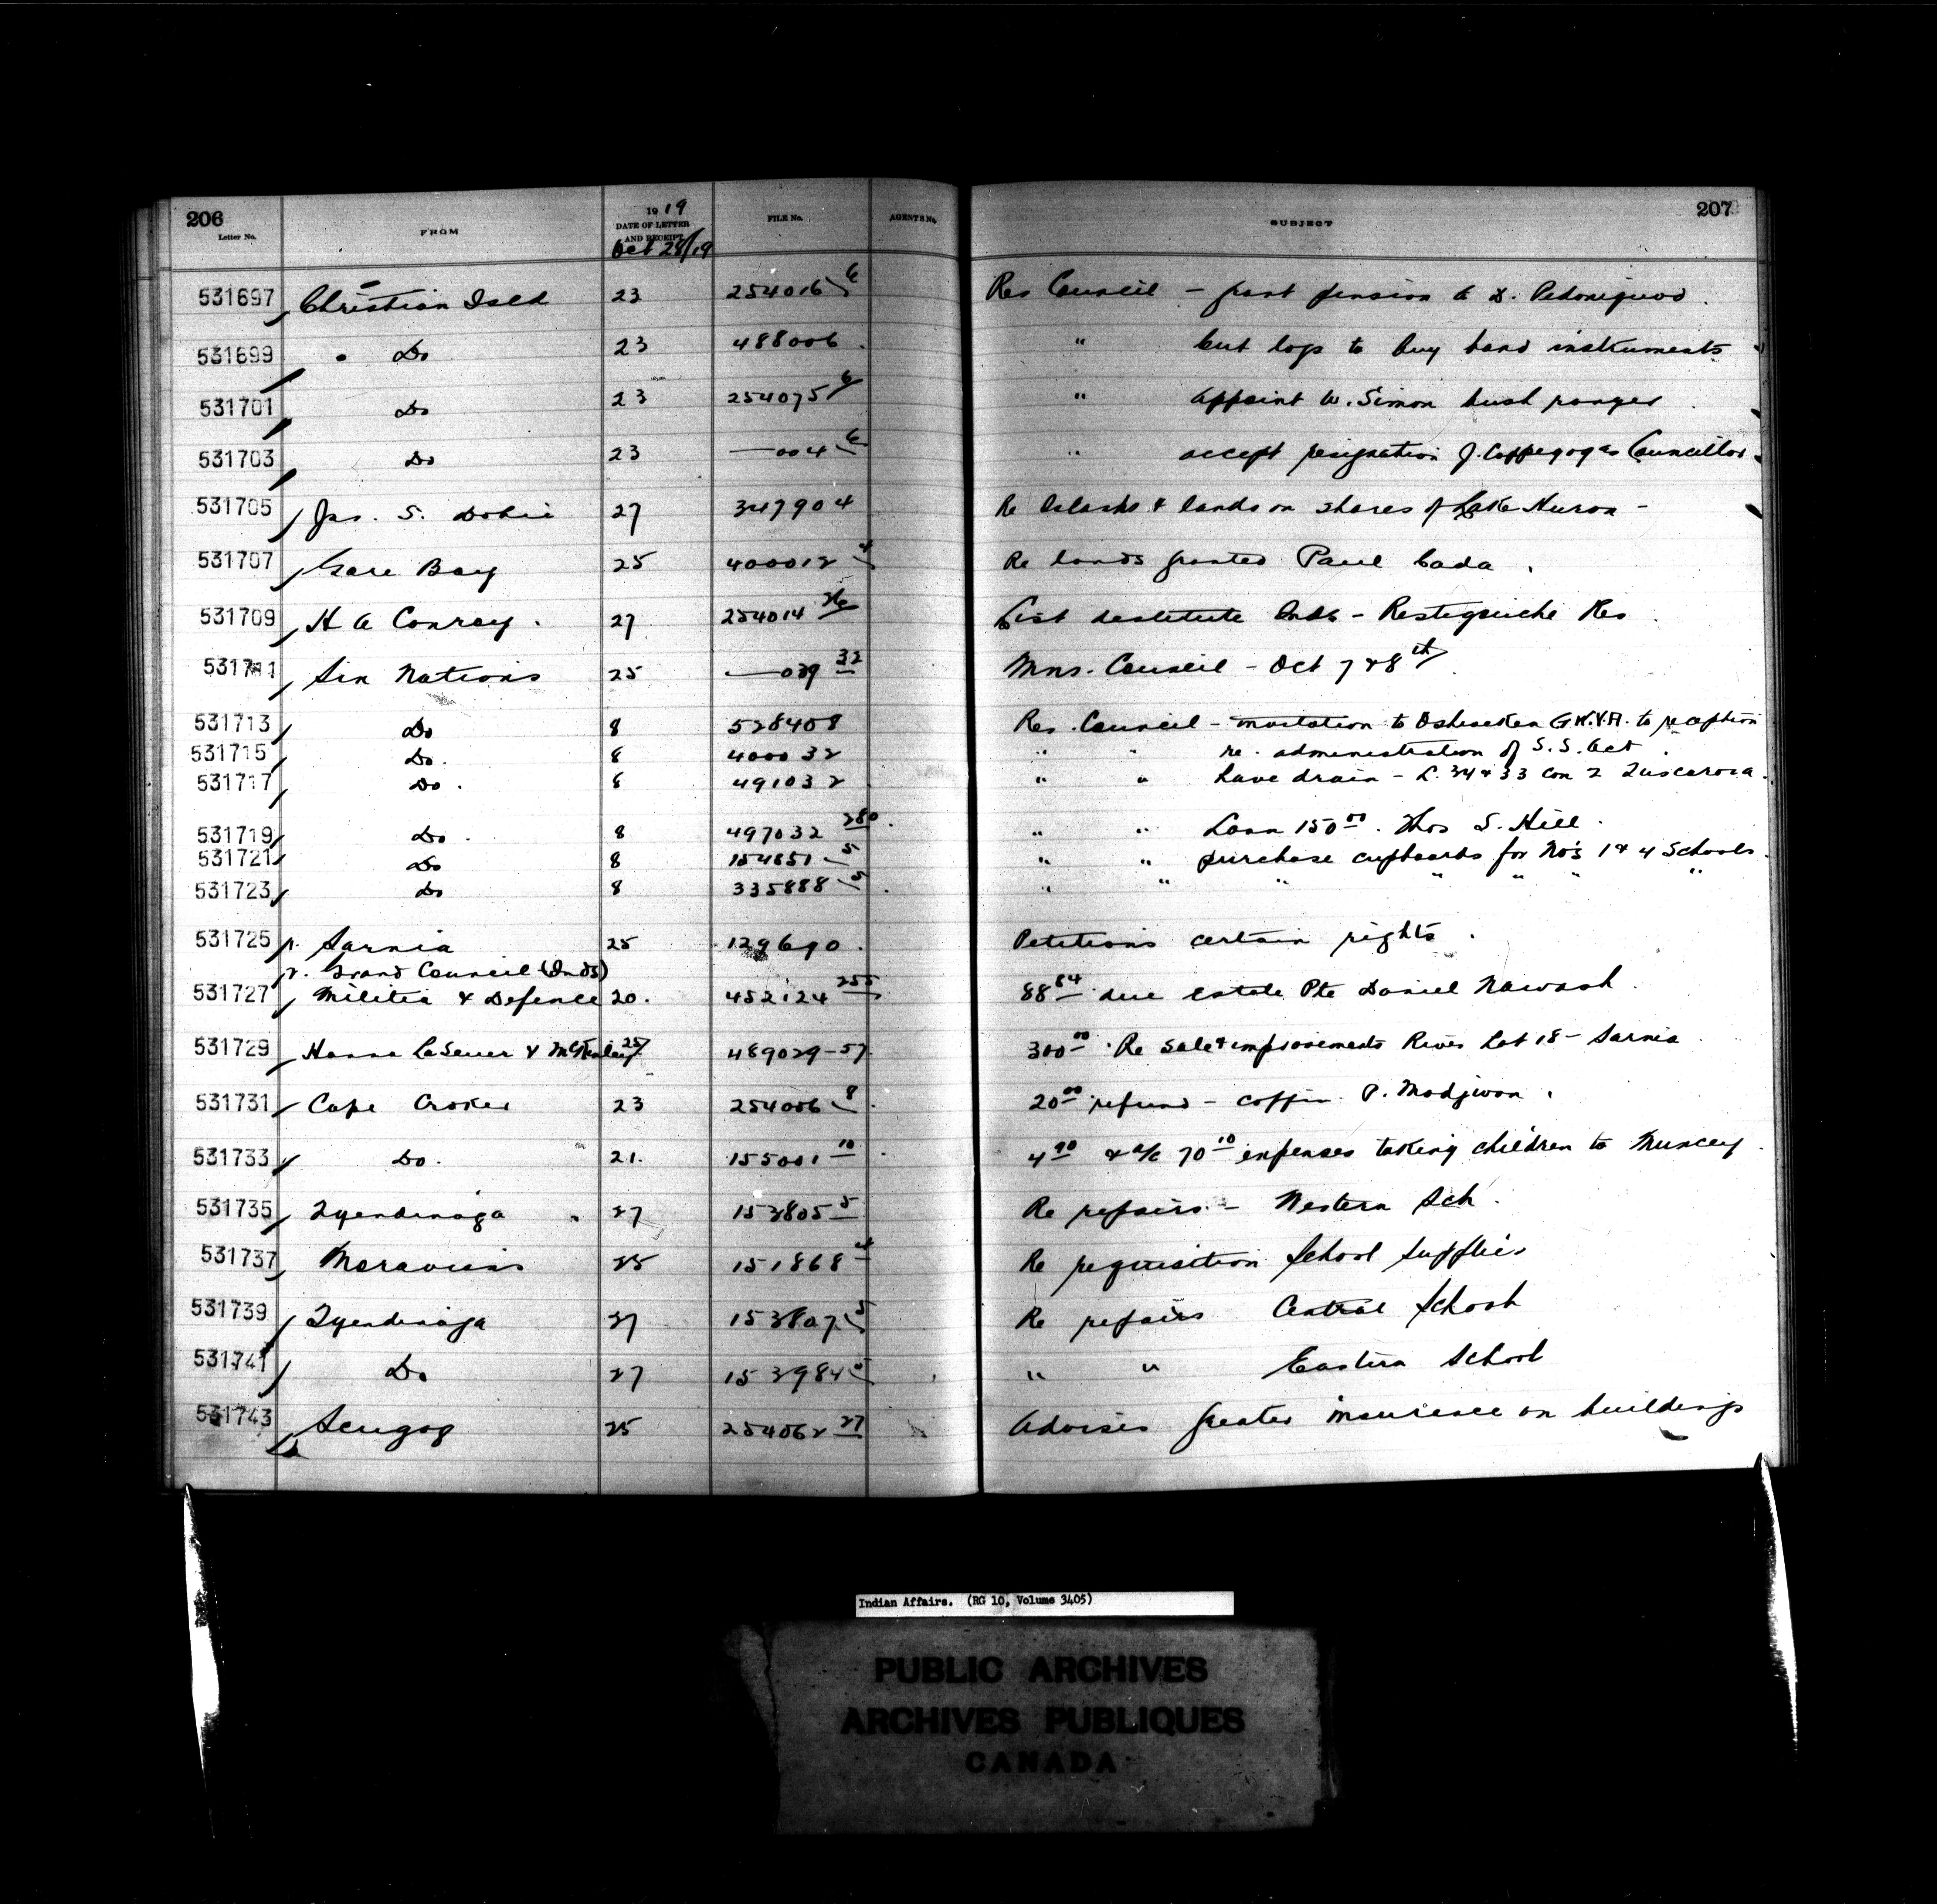 206 207
Letter No. FROM 1919 DATE OF LETTER AND RECEIPT FILE No. AGENTS No. SUBJECT
Oct 28/19
531697 Christian Isld 23 254016 6 Res Council - grant pension to D.
531699 Do 23 488006 " cut logs to buy band instruments
531701 Do 23 254075 6 " appoint W. Simon bush ranger
531703 Do 23 —004 6 " accept resignation J. Coppegog as Councillor
531705 Jas. S. Dobie 27 347904 Re Islands & lands on shores of Lake Huron -
531707 Gore Bay 25 400012 4 Re lands granted Paul Cada
531709 H A Conroy 27 254014 26 List destitute Inds - Restigouche Res
531711 Six Nations 25 —039 32 Mns. Council - Oct 7 & 8th
531713 Do 8 528408 Res. Council - invitation to Ohsweken G.W.V.A. to reception
531715 Do. 8 400032 " " re. administration of S.S. Act
531717 Do. 8 491032 " " have drain - L. 34 & 33 Con 2 Tuscarora.
531719 Do. 8 497032 280 " " Loan 150 00. Thos S. Hill.
531721 Do 8 154651 5 " " purchase cupboards for No's 1 & 4 Schools.
531723 Do 8 335888 5 " " " " " " "
531725 Sarnia 25 129690. Petitions certain rights.
r. Grand Council (Inds)
531727 Militia & Defence 20. 452124 255 88 84 due estate Pte Daniel Nawash.
531729 Hanna LeSueur & McKinley 25 489029-57. 300 00 Re sale & improvements River Lot 18 - Sarnia
531731 Cape Croker 23 254006 8 20 00 refund - coffin P. Modjwon.
531733 Do. 21. 155001 10 4 90 & a/c 70 10 expenses taking children to Muncey.
531735 Tyendinaga 27 153805 5 Re repairs - Western Sch.
531737 Moravians 25 151868 4 Re requisition School Supplies
531739 Tyendinaga 27 153807 5 Re repairs Central School
531741 Do 27 153984 5 " " Eastern School
531743 Scugog 25 254062 27 Advises greater insurance on buildings
Indian Affairs. (RG 10, Volume 3405)
PUBLIC ARCHIVES
ARCHIVES PUBLIQUES
CANADA